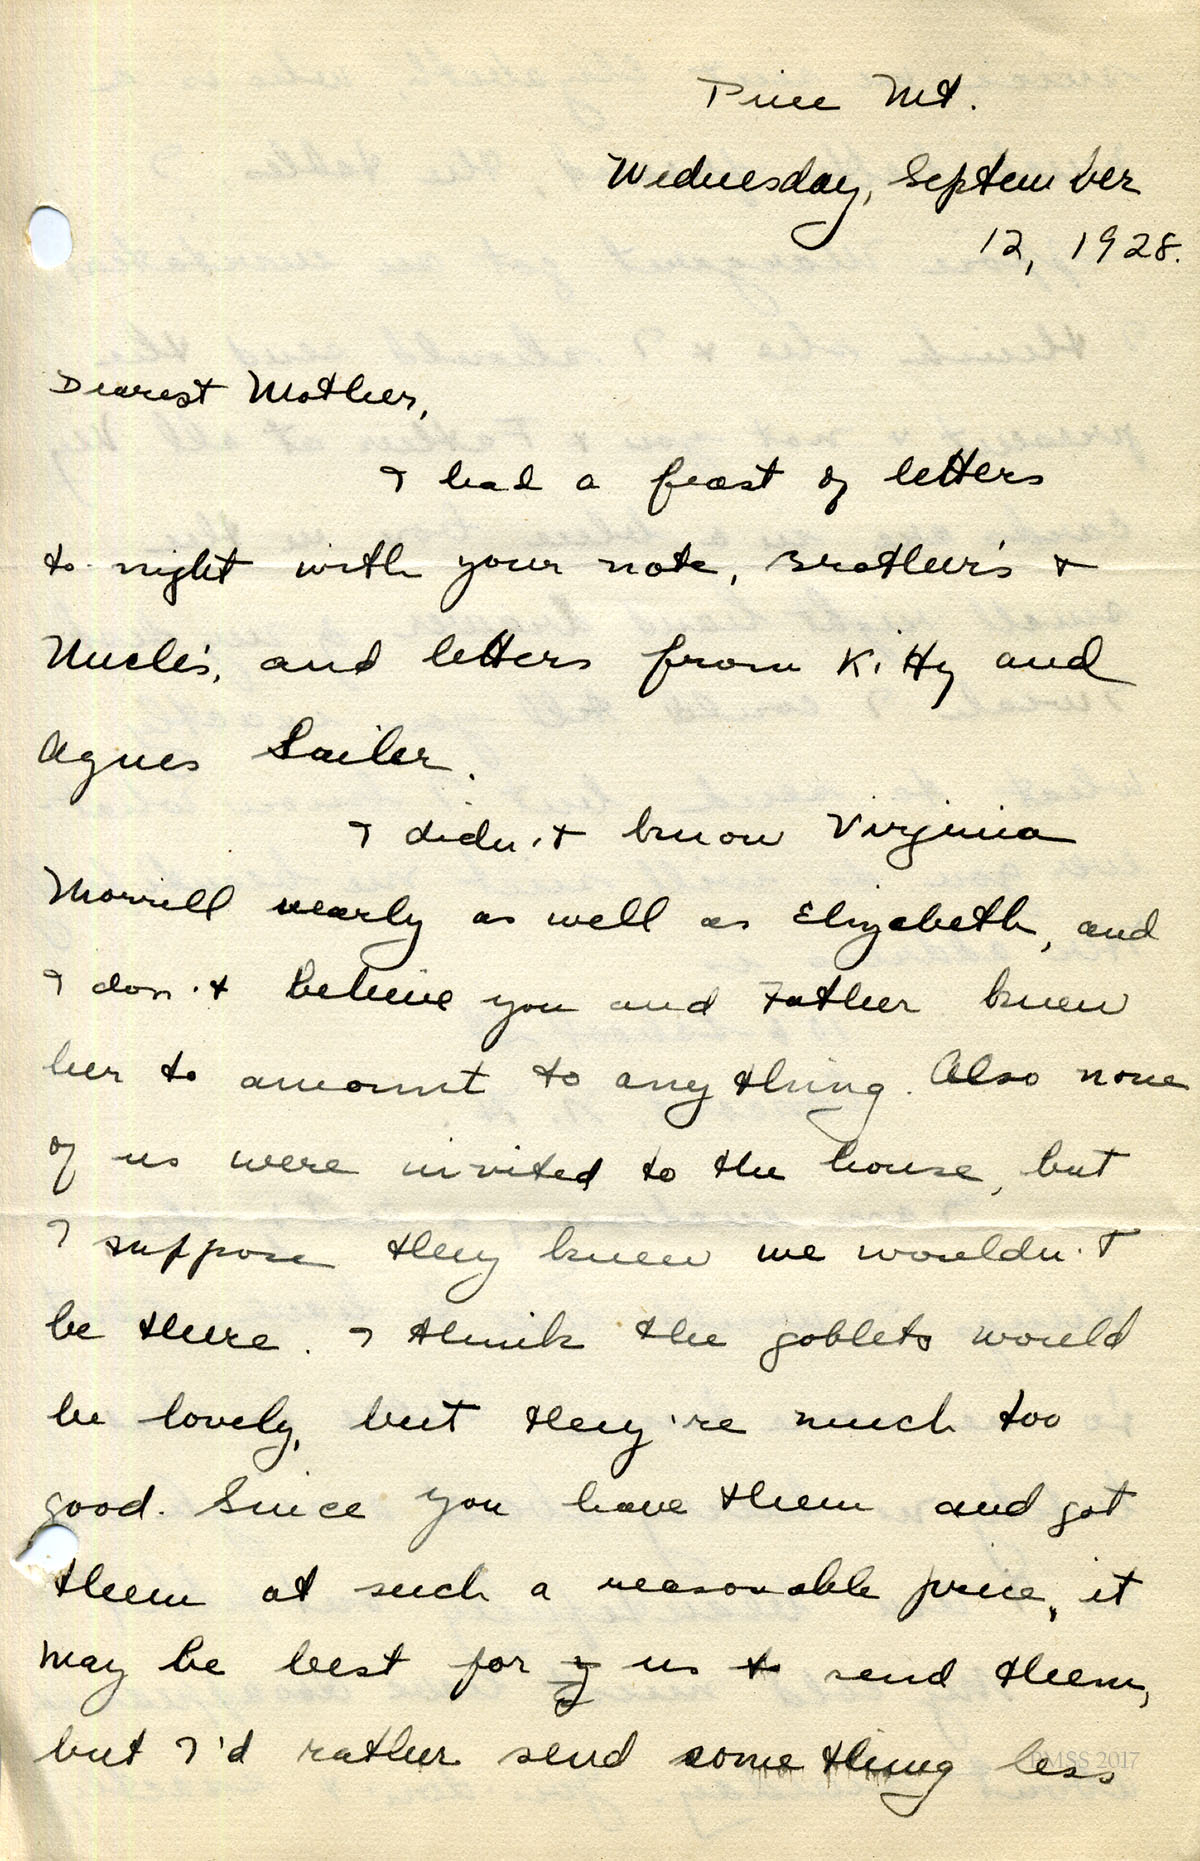 Pine Mt.
Wednesday, September
12, 1928.
Dearest Mother,
I had a feast of letters
to night with your note, Brother's &
Uncle's, and letters from Kitty and
Agnes Sailer.
I didn't know Virginia
Morrill nearly as well as Elizabeth, and
I don't believe you and Father knew
her to amount to any thing. Also none
of us were invited to the house, but
I suppose they knew we wouldn't
be there. I think the goblets would
be lovely, but they're much too
good. Since you have them and got
them at such a reasonable price, it
may be best for us to send them,
but I'd rather send some thing less
PMSS 2017